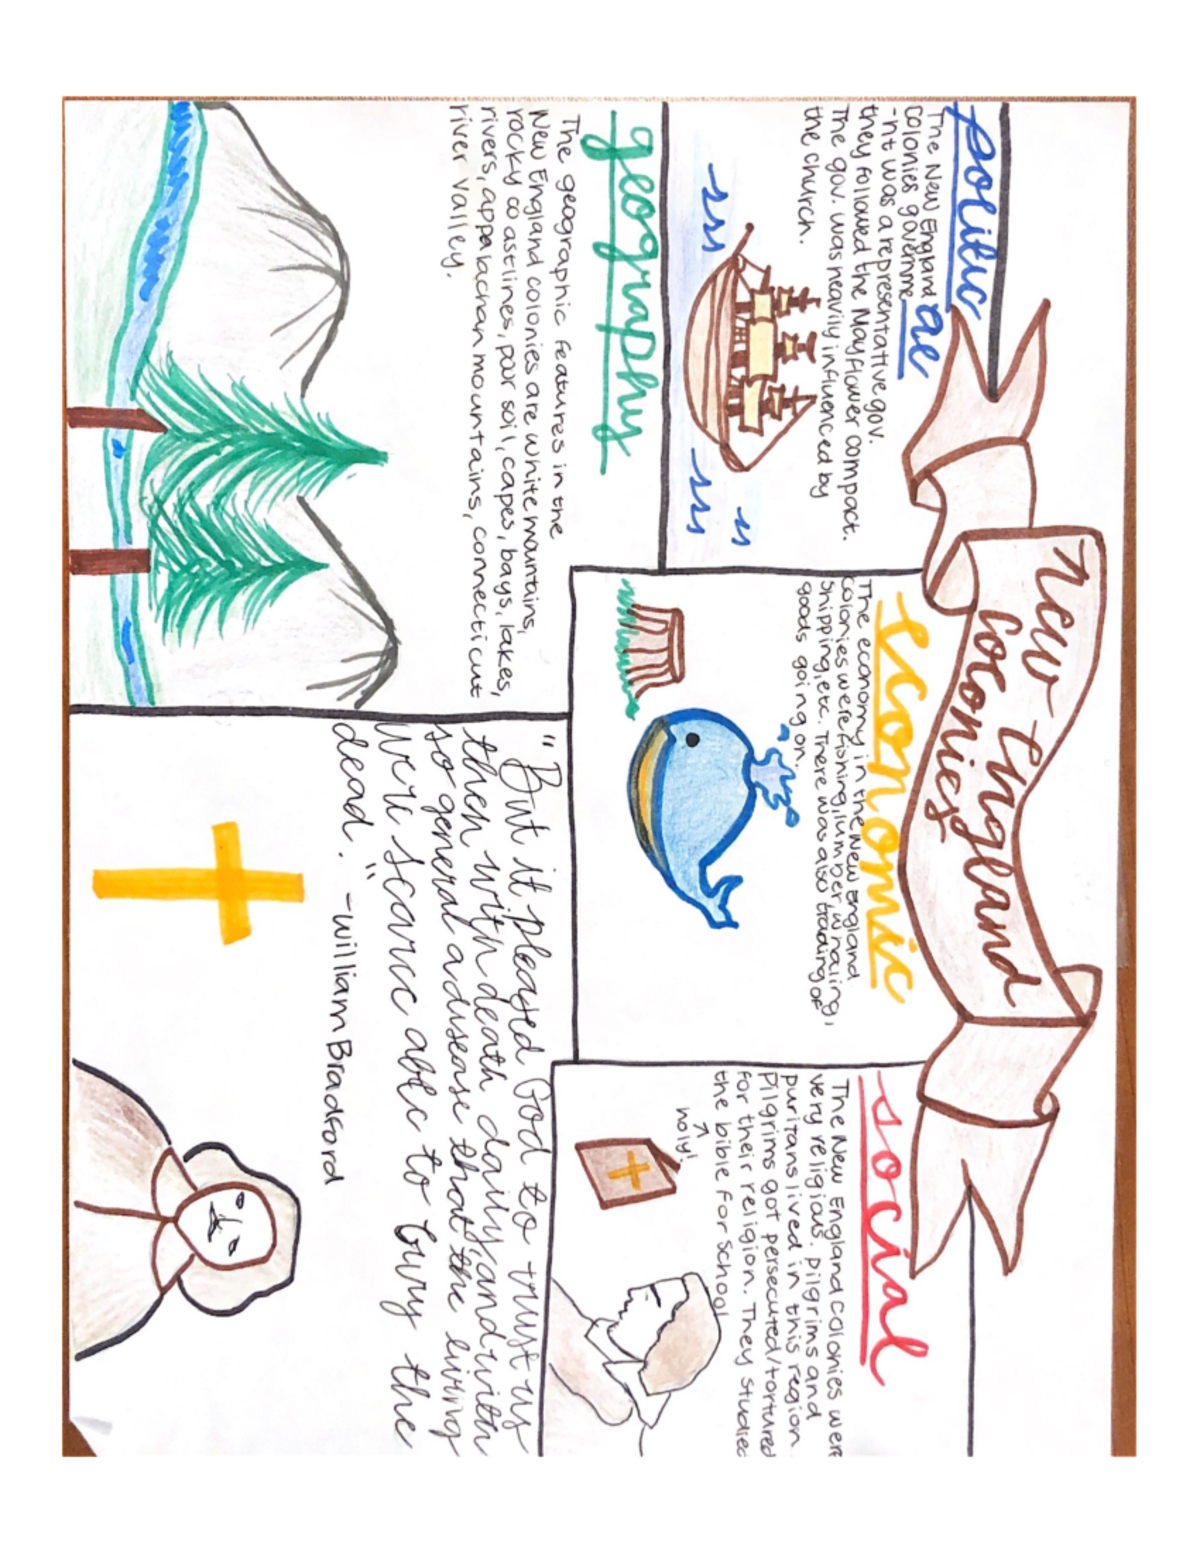 New England
Colonies
political
The New England
colonies governme
-nt was a representative gov.
they followed the Mayflower Compact.
The gov. was heavily influenced by
the church.
economic
The economy in the New England
colonies were fishing, lumber, whaling,
shipping, etc. There was also trading of
goods going on.
social
The New England colonies were
very religious. Pilgrims and
puritans lived in this region.
Pilgrims got persecuted/tortured
for their religion. They studied
the bible for school
holy!
geography
The geographic features in the
New England colonies are white mountains,
rocky coastlines, poor soil, capes, bays, lakes,
rivers, appalachan mountains, connecticut
river valley.
"But it pleased God to trust us
then with death daily, and with
so general a disease that the living
were scarce able to bury the
dead."
-William Bradford